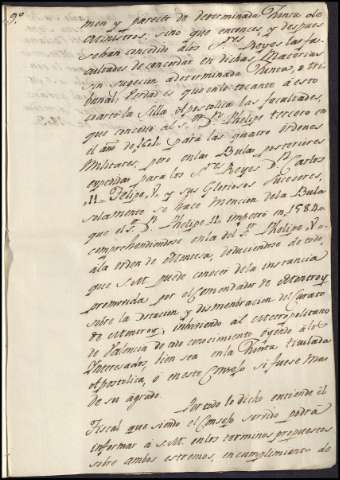 9.º
men y parecer de determinada Junta de
Ministros, sino que entonces, y despues
se han concedido a los S.res Reyes las fa-
cultades de conocer en dichas Materias
sin sugecion a determinada Junta, o tri-
bunal; verdad es que en lo tocante a esto
la Silla Apostolica las facultades,
que concedio al S. D.n Phelipe tercero en
el año de para las quatro ordenes
Militares, pero en las Bulas posteriores
expedidas para los S.res Reyes D.n Carlos
II. Felipe V. y sus Gloriosos Sucesores,
solamente se hace mencion de la Bula
que el S. D.n Phelipe II. impetró en 1584.
comprehendiendose en la del S. Phelipe V.
a la orden de Montesa, deduciendose de todo,
que S.M. puede conocer de la instancia
promovida por el Comendador de Montroy
sobre la dotacion y dismembracion del Curato
de Montroy, inhiviendo al Metropolitano
de Valencia de este conocimiento oyendo a los
Interesados, bien sea en la Junta titulada
Apostolica, o en este Consejo si fuese mas
de su agrado.
Por todo lo dicho entiende el
Fiscal que siendo el Consejo servido podrá
informar a S.M. en los terminos propuestos
sobre ambos extremos, en cumplimiento de